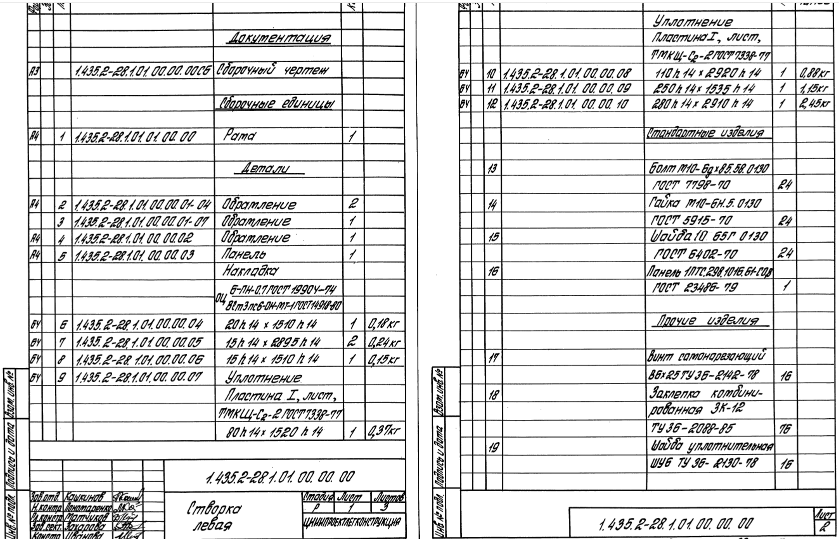 Документация
А3 1.435.2-28.1.01.00.00.00СБ Сборочный чертеж
Сборочные единицы
А4 1 1.435.2-28.1.01.01.00.00 Рама 1
Детали
А4 2 1.435.2-28.1.01.00.00.01-04 Обрамление 2
3 1.435.2-28.1.01.00.00.01-07 Обрамление 1
А4 4 1.435.2-28.1.01.00.00.02 Обрамление 1
А4 5 1.435.2-28.1.01.00.00.03 Панель 1
Накладка
ОЦ Б-ПН-0,7 ГОСТ 19904-74
БЧ 6 1.435.2-28.1.01.00.00.04 20h14 × 1510h14 1 0,18кг
БЧ 7 1.435.2-28.1.01.00.00.05 15h14 × 2895h14 2 0,24кг
БЧ 8 1.435.2-28.1.01.00.00.06 16h14 × 1510h14 1 0,15кг
БЧ 9 1.435.2-28.1.01.00.00.07 Уплотнение
Пластина I, лист,
ТМКЩ-С2-2 ГОСТ 7338-77
80h14 × 1520h14 1 0,37кг
1.435.2-28.1.01.00.00.00
Створка
левая
Стадия Лист Листов
Р 1 3
ЦНИИПРОЕКТЛЕГКОНСТРУКЦИЯ
Зав.отд. Кашкинов
Н.контр. Пономаренко
Зав.сект. Захарова
Инв.№ подл. Подпись и дата Взам.инв.№
Уплотнение
Пластина I, лист,
ТМКЩ-С2-2 ГОСТ 7338-77
БЧ 10 1.435.2-28.1.01.00.00.08 110h14 × 2920h14 1 0,88кг
БЧ 11 1.435.2-28.1.01.00.00.09 250h14 × 1535h14 1 1,15кг
БЧ 12 1.435.2-28.1.01.00.00.10 280h14 × 2910h14 1 2,45кг
Стандартные изделия
13 Болт М10-6g×85.58.0130
ГОСТ 7798-70 24
14 Гайка М10-6Н.5.0130
ГОСТ 5915-70 24
15 Шайба 10 65Г 0130
ГОСТ 6402-70 24
16 Панель
ГОСТ 23486-79 1
Прочие изделия
17 Винт самонарезающий
В6×25 ТУ 36-2142-78 16
18 Заклепка комбини-
рованная ЗК-12
ТУ 36-2088-85 76
19 Шайба уплотнительная
ШУ6 ТУ 36-2130-78 16
1.435.2-28.1.01.00.00.00
Лист
2
Инв.№ подл. Подпись и дата Взам.инв.№